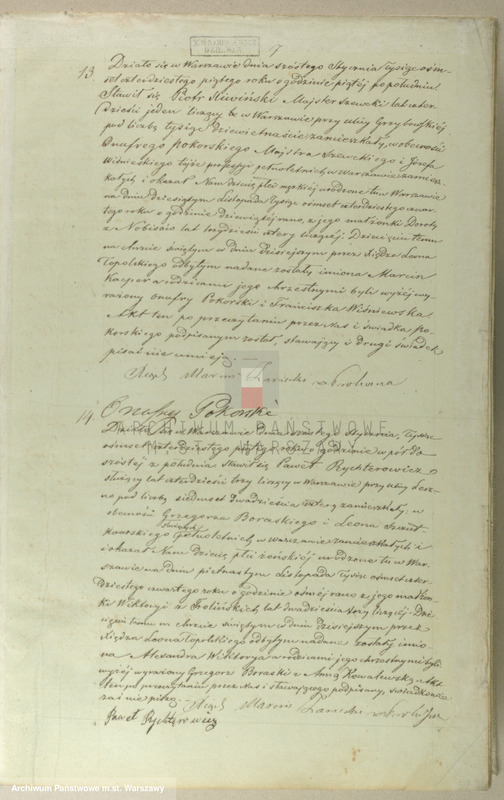 7
13. Działo się w Warszawie dnia szóstego Stycznia tysiąc ośm-
set czterdziestego piątego roku o godzinie piątéj po południu
Stawił się Piotr Majster szewcki lat czter-
dzieści jeden liczący tu w Warszawie przy ulicy Grzybowskiéj
pod liczbą tysiąc dziewiętnaście zamieszkały, w obecności
Onufrego Pokorskiego Majstra Szewckiego i Józefa
Wiśniewskiego tejże professyi pełnoletnich w Warszawie zamiesz-
kałych i okazał Nam dziecię płci męzkiéj urodzone tu w Warszawie
na dniu dziesiątym Listopada tysiąc ośmset czterdziestego czwar-
tego roku o godzinie dziewiątéj rano, z jego małżonki Doroty
z lat trzydzieści cztery liczącéj. Dziecięciu temu
na Chrzcie świętym w dniu dzisiejszym przez Xiędza Leona
Topolskiego odbytym nadane zostały imiona Marcin
Kacper a rodzicami jego chrzestnymi byli wyżéj wy-
rażony Onufry Pokorski i Franciszka Wiśniewska.
Akt ten po przeczytaniu przez Nas i świadka Po-
korskiego podpisanym został, stawający i drugi świadek
pisać nie umieją.
Xiądz Marcin
Onufry Pokorski
14. Działo się w Warszawie dnia szóstego Stycznia, tysiąc
ośmset czterdziestego piątego roku o godzinie wpół do
szóstéj z południa Stawił się Paweł Rychterowicz
służący lat czterdzieści trzy liczący w Warszawie przy ulicy Lesz-
no pod liczbą siedmset dwadzieścia cztery zamieszkały; w
obecności Grzegorza Boraskiego i Leona
służących pełnoletnich w Warszawie zamieszkałych i
okazał Nam Dziecię płci żeńskiéj urodzone tu w War-
szawie na dniu piętnastym Listopada tysiąc ośmset czter-
dziestego czwartego roku o godzinie ósméj rano z jego małżon-
ki Wiktoryi z lat dwadzieścia liczącéj. Dzie-
cięciu temu na Chrzcie świętym w dniu dzisiejszym przez
Xiędza Leona Topolskiego odbytym nadane zostały imio-
na Alexandra Wiktorya a rodzicami jego chrzestnymi byli
wyżéj wyrażony Grzegorz Boraski i Anna Kowalewska. Akt
ten po przeczytaniu przez Nas i stawającego podpisany, świadkowie
zaś nie piszą.
Xiądz Marcin
Paweł Rychterowicz
ARCHIWUM PAŃSTWOWE
W WARSZAWIE
Archiwum Państwowe m.st. Warszawy